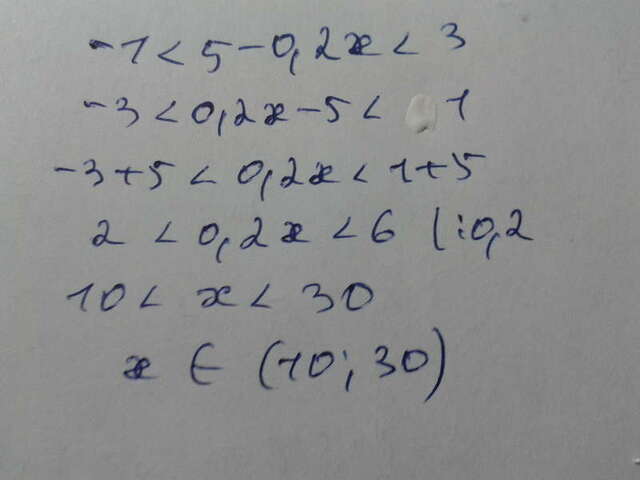 -1 < 5 - 0,2x < 3
-3 < 0,2x - 5 < 1
-3+5 < 0,2x < 1+5
2 < 0,2x < 6 |:0,2
10 < x < 30
x ∈ (10; 30)